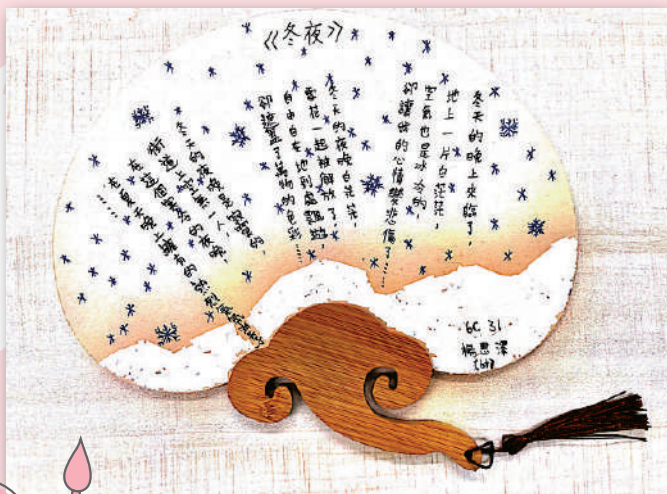 《冬夜》
冬天的晚上來臨了，
地上一片白茫茫，
空氣也是冰冷的，
卻讓我的心情變悲傷了……
冬天的夜晚白茫茫，
雪花一起被解放了，
自由自在地到處飄遊，
卻掩蓋了萬物的色彩……
冬天的夜晚是寂寞的，
街道上空無一人，
在這個寒冷的夜晚，
在夏天晚上擁有的熱烈
……
6C 31
楊思深